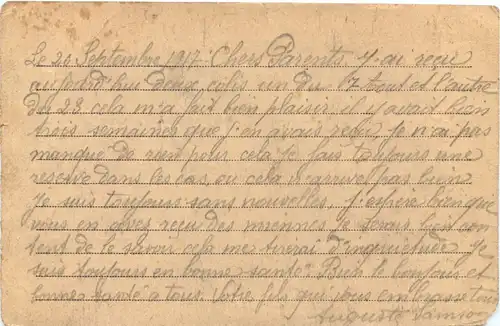 Le 20 Septembre 1917 Chers Parents J'ai reçu
aujourd'hui deux colis un du 17 tout et l'autre
du 23 cela m'a fait bien plaisir il y avait bien
trois semaines que j'en avais reçu Je n'ai pas
manque de rien pour cela Je fais toujours une
reserve dans les cas ou cela n'arrive pas bien
Je suis toujours sans nouvelles. J'espère bien que
vous en avez reçu des miennes Je serais bien con
tent de le savoir cela me tirerai d'inquietude Je
suis toujours en bonne santé Bien le bonjour et
bonne santé a tous Votre fils qui vous embrasse tous
Auguste